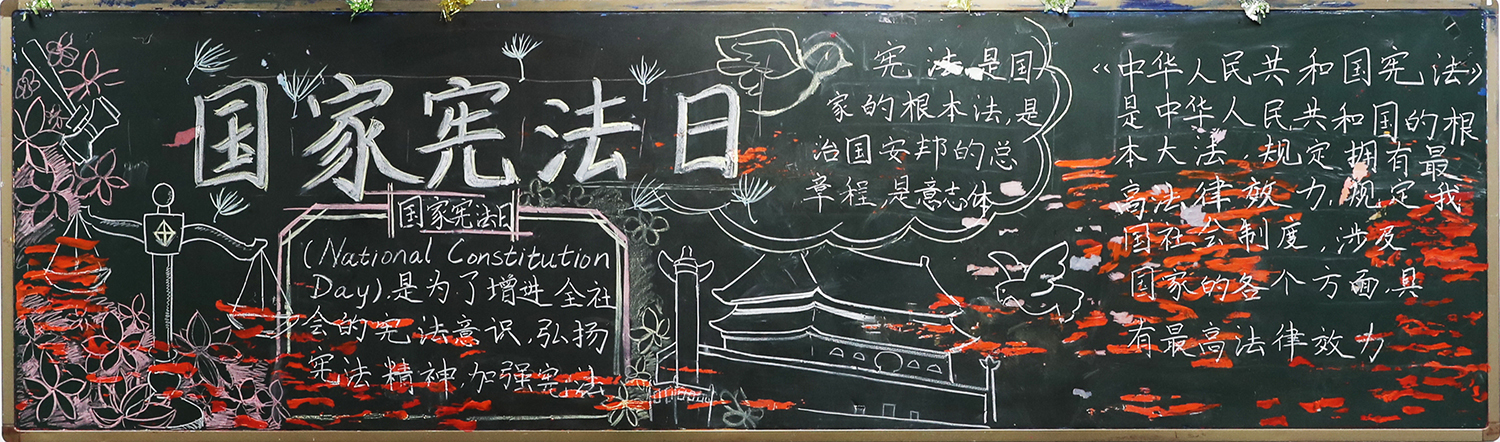 国家宪法日
国家宪法日
(National Constitution
Day),是为了增进全社
会的宪法意识,弘扬
宪法精神,加强宪法
宪法是国
家的根本法,是
治国安邦的总
章程,是意志体
《中华人民共和国宪法》
是中华人民共和国的根
本大法 规定拥有最
高法律效力,规定我
国社会制度,涉及
国家的各个方面具
有最高法律效力